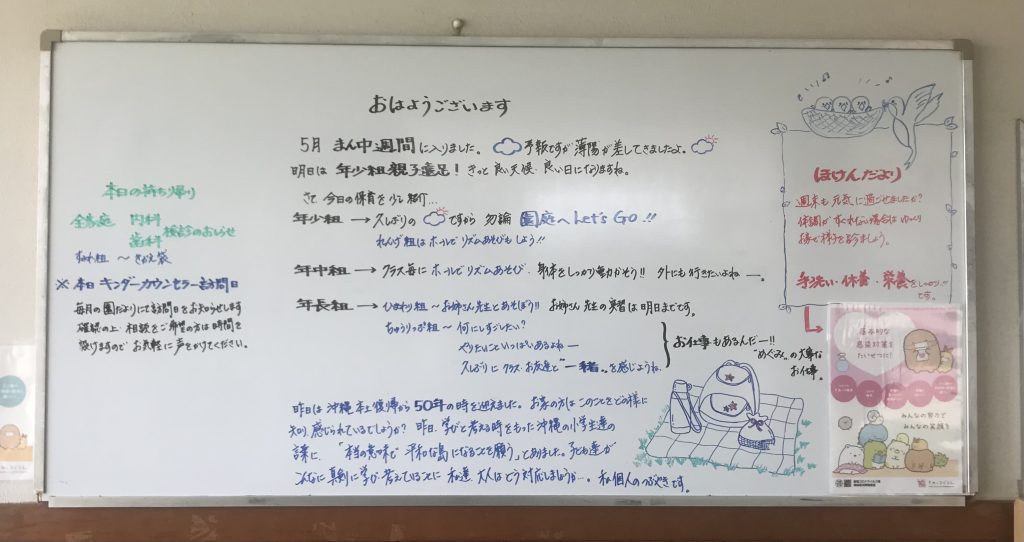 おはようございます
5月 まん中週間に入りました。 予報ですが 薄陽が差してきましたよ。
明日は 年少組親子遠足! きっと 良い天候、良い日になりますね。
さて 今日の保育を少し 紹介…
年少組 → 久しぶりの ですから 勿論 園庭へ Let's Go!!
れんげ組は ホールで リズムあそびもしよう!!
年中組 → クラス毎に ホールで リズムあそび、 身体をしっかり動かそう!! 外にも行きたいよね ー。
年長組 → ひまわり組 ~ お姉さん先生とあそぼう!! お姉さん先生の実習は 明日までです。
ちゅうりっぷ組 ~ 何にしすごしたい?
やりたいこといっぱいあるよね ー
久しぶりに クラス・お友達と "一緒"を感じようね
お仕事もあるんだー!!
"めぐみ"の大事な
お仕事。
昨日は 沖縄 本土復帰から 50年の時を迎えました。 お家の方は このことをどの様に
知り、感じられているでしょうか? 昨日、学びと考える時をもった 沖縄の小学生達の
話に、「本当の意味で 平和な島になることを願う」とありました。 子ども達が
こんなに 真剣に 学び 考えていることに 私達 大人は どう対応しましょうか…。 私個人の つぶやきです。
本日の持ち帰り
全家庭 内科
歯科 検診のおしらせ
すみれ組 ~ きがえ袋
※ 本日 キンダーカウンセラー訪問日
毎月の園だよりにて 訪問日をお知らせします
確認の上、相談をご希望の方は 時間を
設けますので お気軽に 声をかけてください。
ほけんだより
週末も 元気に 過ごせましたか?
体調が すぐれない場合は ゆっくり
お家で 様子を診ましょう。
手洗い・休養・栄養をしっかり!!
です。
基本的な
感染対策を
たいせつに!
みんなの努力で
みんなの笑顔を